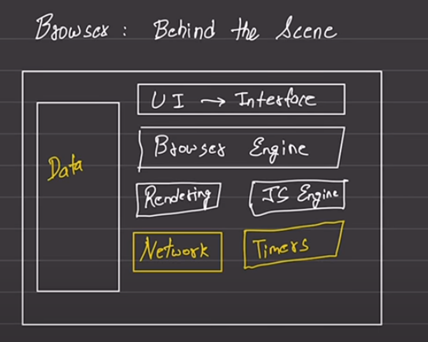 Browser: Behind the Scene
UI → Interface
Data
Browser Engine
Rendering
JS Engine
Network
Timers